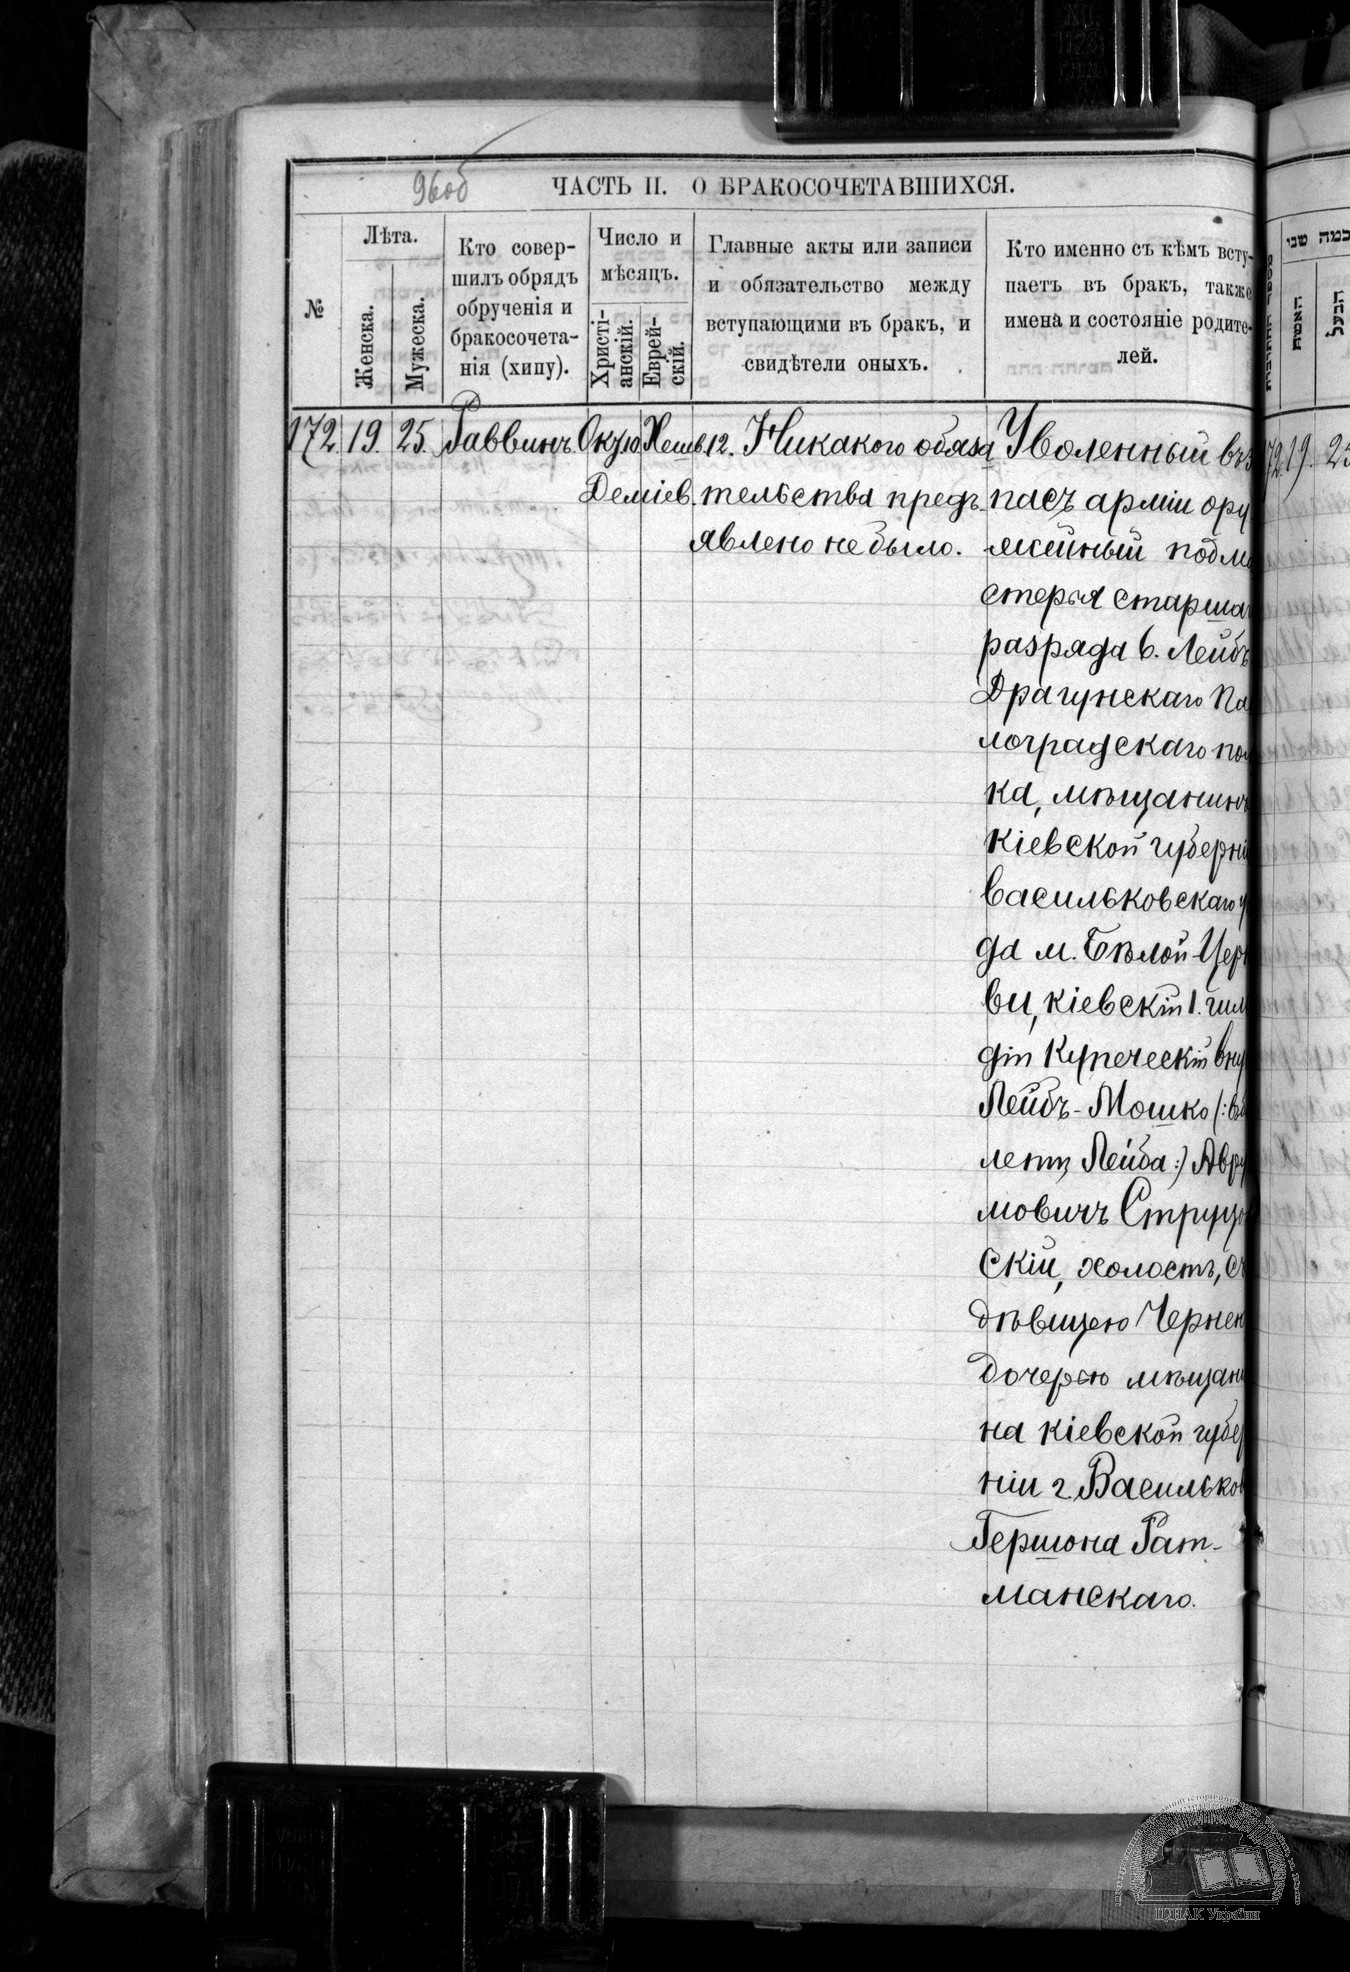 96об
ЧАСТЬ II. О БРАКОСОЧЕТАВШИХСЯ.
№
Лѣта.
Женска.
Мужеска.
Кто совер-
шилъ обрядъ
обрученія и
бракосочета-
нія (хипу).
Число и
мѣсяцъ.
Христі-
анскій.
Еврей-
скій.
Главные акты или записи
и обязательство между
вступающими въ бракъ, и
свидѣтели оныхъ.
Кто именно съ кѣмъ всту-
паетъ въ бракъ, также
имена и состояніе родите-
лей.
172. 19. 25. Раввинъ Окт. 10. Хешв. 12. Никакого обяза
Деміев. тельства предъ-
явлено не было.
Уволенный въ
пасъ арміи ору
жейный подма
стерья старша
разряда б. Лейбъ
Драгунскаго Па
лоградскаго пол
ка, мѣщанинъ
Кіевской губерні
Васильковскаго у
да м. Бѣлой-Церк
ви, Кіевскій 1. гил
діи Купеческій вну
Лейбъ-Мошко (: въ
летъ Лейба :) Авру
мовичъ Струцов
скій, холостъ, съ
дѣвицею Черней
дочерью мѣщани
на Кіевской губер
ніи г. Васильков
Гершона Рат-
манскаго.
כמה שני
האשות
הבעל
172. 19. 25
ЦДІАК України